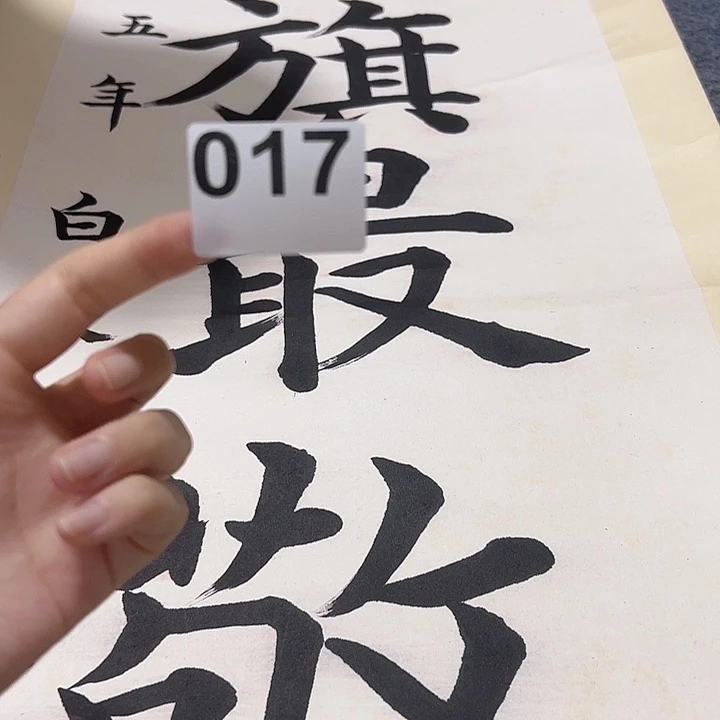 017
旗最敬
五年白